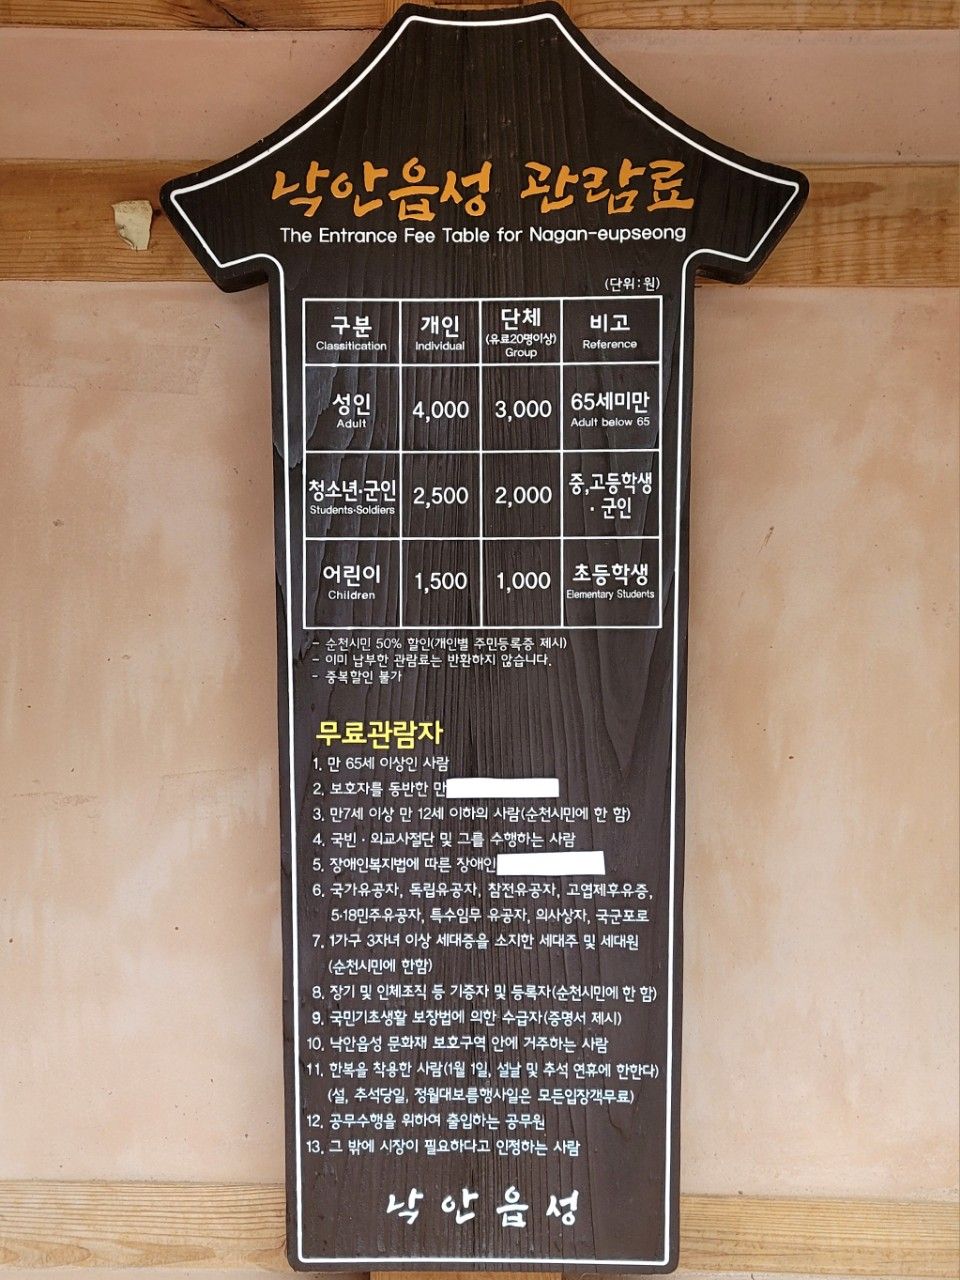 낙안읍성 관람료
The Entrance Fee Table for Nagan-eupseong
(단위:원)
구분 개인 단체 비고
(유료20명이상)
Classitication Individual Group Reference
성인 4,000 3,000 65세미만
Adult Adult below 65
청소년·군인 2,500 2,000 중,고등학생
Students·Soldiers · 군인
어린이 1,500 1,000 초등학생
Children Elementary Students
- 순천시민 50% 할인(개인별 주민등록증 제시)
- 이미 납부한 관람료는 반환하지 않습니다.
- 중복할인 불가
무료관람자
1. 만 65세 이상인 사람
2. 보호자를 동반한 만
3. 만7세 이상 만 12세 이하의 사람(순천시민에 한 함)
4. 국빈 · 외교사절단 및 그를 수행하는 사람
5. 장애인복지법에 따른 장애인
6. 국가유공자, 독립유공자, 참전유공자, 고엽제후유증,
5·18민주유공자, 특수임무 유공자, 의사상자, 국군포로
7. 1가구 3자녀 이상 세대증을 소지한 세대주 및 세대원
(순천시민에 한함)
8. 장기 및 인체조직 등 기증자 및 등록자(순천시민에 한 함)
9. 국민기초생활 보장법에 의한 수급자(증명서 제시)
10. 낙안읍성 문화재 보호구역 안에 거주하는 사람
11. 한복을 착용한 사람(1월 1일, 설날 및 추석 연휴에 한한다)
(설, 추석당일, 정월대보름행사일은 모든입장객무료)
12. 공무수행을 위하여 출입하는 공무원
13. 그 밖에 시장이 필요하다고 인정하는 사람
낙안읍성